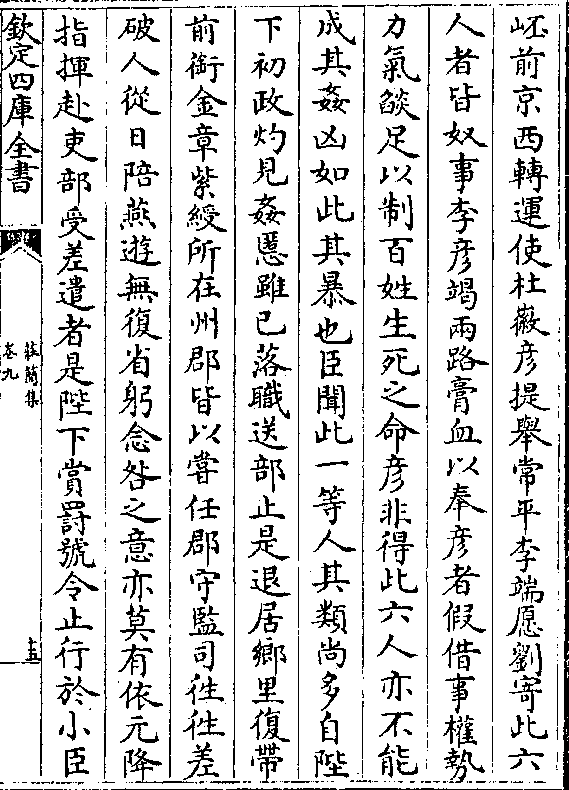 岯前京西轉運使杜㣲彦提舉常平李端愿劉寄此六
人者皆奴事李彦竭兩路膏血以奉彦者假借事權勢
力氣燄足以制百姓生死之命彦非得此六人亦不能
成其姦凶如此其暴也臣聞此一等人其類尚多自陛
下初政灼見姦慝雖已落職送部止是退居鄉里復帶
前銜金章紫綬所在州郡皆以嘗任郡守監司徃徃差
破人從日陪燕遊無復省躬念咎之意亦莫有依元降
指揮赴吏部受差遣者是陛下賞罰號令止行於小臣
欽定四庫全書
莊簡集
卷九
十五